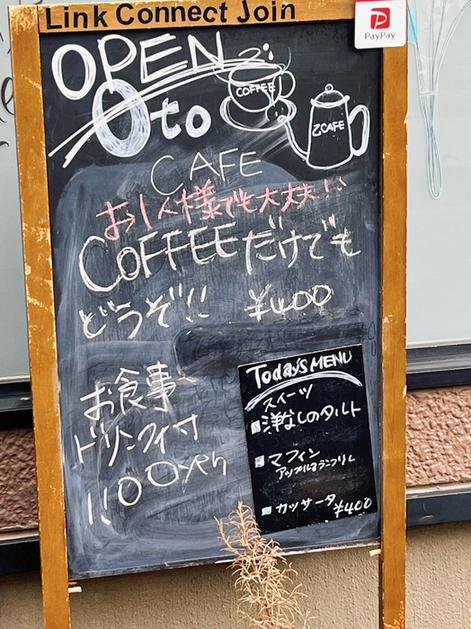 Link Connect Join
PayPay
OPEN
Oto
COFFEE
CAFE
CAFE
お1人様でも大丈夫!!
COFFEEだけでも
どうぞ!! ¥400
お食事
ドリンク付
1100
Today's MENU
スイーツ
洋なしのタルト
マフィン
カッサータ ¥400